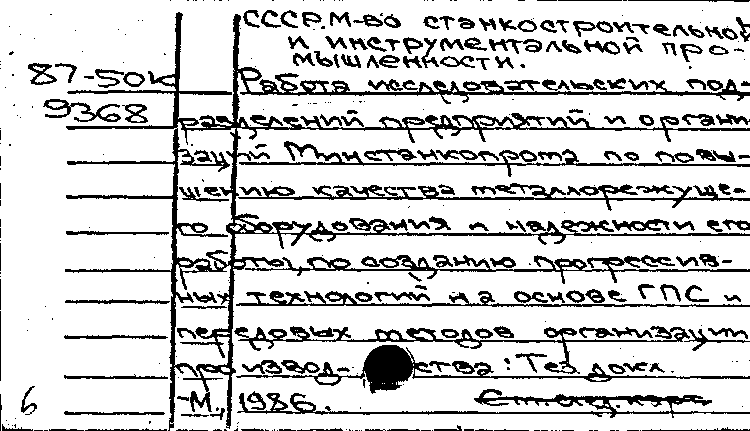 СССР. М-во станкостроительной
и инструментальной про-
мышленности.
87-50к Работа исследовательских под-
9368 разделений предприятий и органи
заций Минстанкопрома по повы-
шению качества металлорежуще-
го оборудования и надежности его
работы, по созданию прогрессив-
ных технологий на основе ГПС и
передовых методов организации
производ- ства: Тез. докл.
6 -М., 1986.